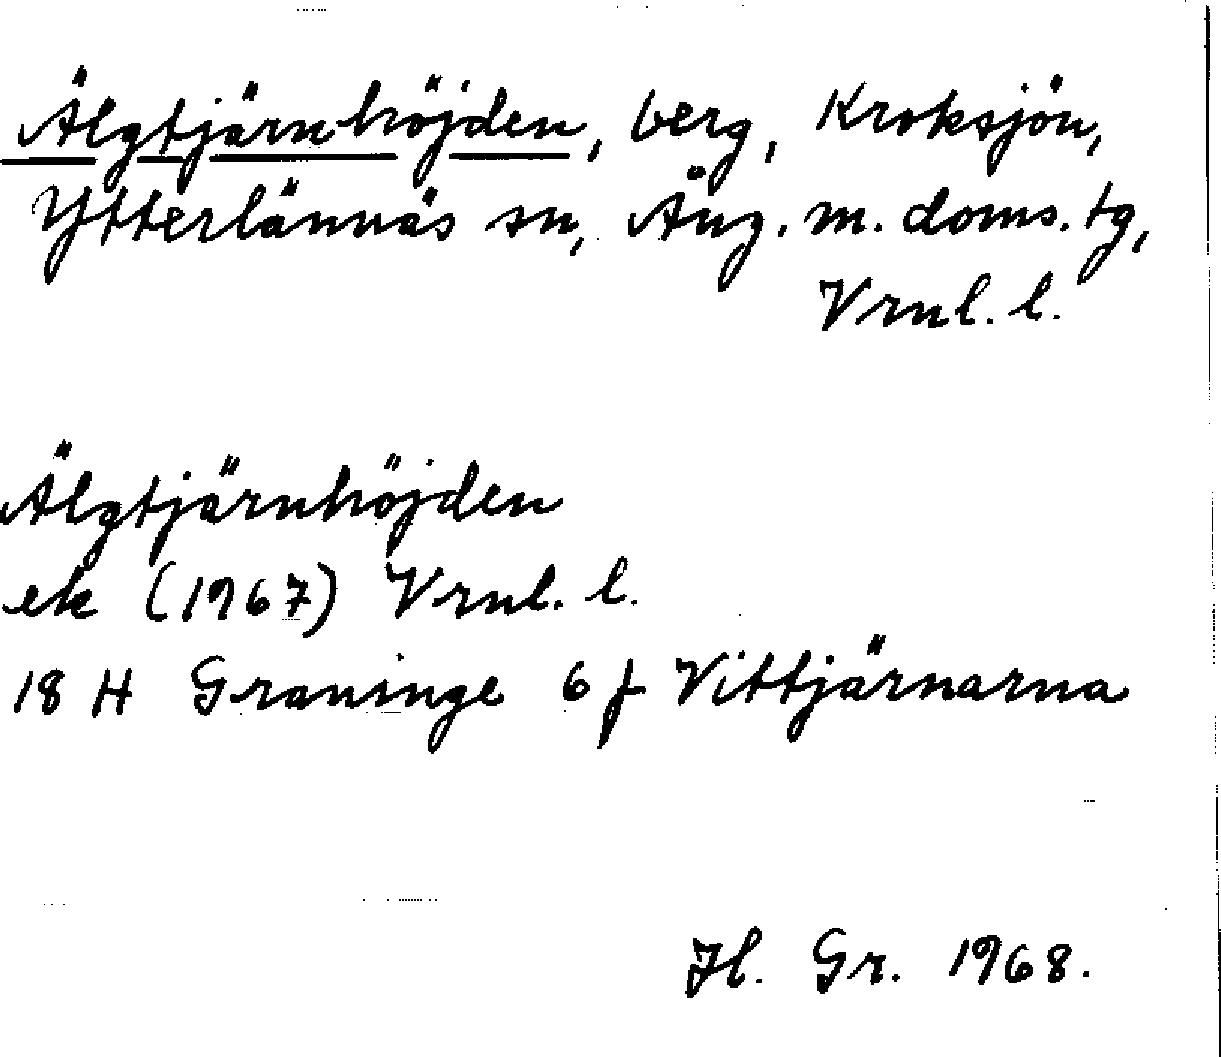 Älgtjärnhöjden, berg, Kroksjön,
Ytterlännäs sn, Ång. m. doms. tg,
Vrnl. l.
Älgtjärnhöjden
ek (1967) Vrnl. l.
18 H Graninge 6 f Vittjärnarna
Hl. Gr. 1968.